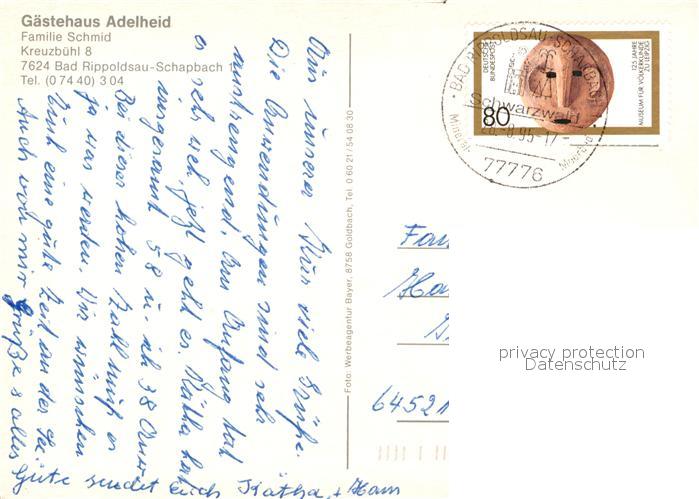 Gästehaus Adelheid
Familie Schmid
Kreuzbühl 8
7624 Bad Rippoldsau-Schapbach 1
Tel. (0 74 40) 3 04
Aus unserer Kur viele Grüße.
Die Anwendungen sind sehr
anstrengend. Am Anfang tat
es sehr weh, jetzt geht es. Kätha hat
insgesamt 58 u. ich 38 Anw.
Bei dieser hohen Zahl muß es
ja was werden. Wir wünschen
Euch eine gute Zeit an der See.
Auch von mir Grüße u. alles
Gute sendet Euch Kätha + Hans
Foto: Werbeagentur Bayer, 8758 Goldbach, Tel. 0 60 21 / 54 08 30
DEUTSCHE
BUNDESPOST
80
125 JAHRE
MUSEUM FÜR VÖLKERKUNDE
ZU LEIPZIG
BAD RIPPOLDSAU-SCHAPBACH
Schwarzwald
-8.95-17
77776
Mineral-
Moorbad
Fam
Ha
6452
privacy protection
Datenschutz